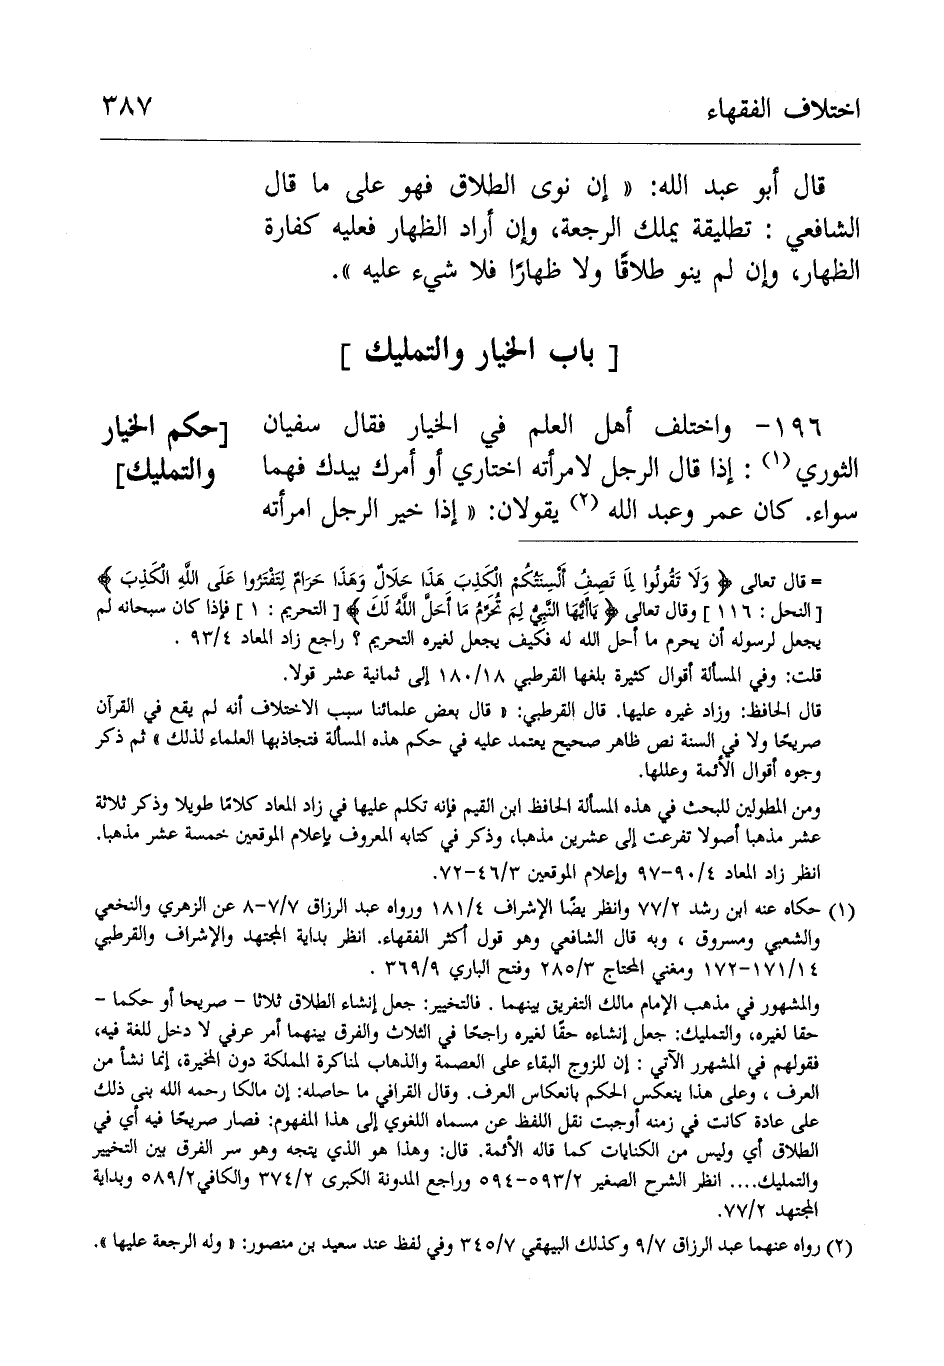 اختلاف الفقهاء ٣٨٧
قال أبو عبد الله: « إن نوى الطلاق فهو على ما قال
الشافعي : تطليقة يملك الرجعة، وإن أراد الظهار فعليه كفارة
الظهار، وإن لم ينو طلاقًا ولا ظهارًا فلا شيء عليه ».
[ باب الخيار والتمليك ]
١٩٦- واختلف أهل العلم في الخيار فقال سفيان
[حكم الخيار
الثوري (١) : إذا قال الرجل لامرأته اختاري أو أمرك بيدك فهما
والتمليك]
سواء. كان عمر وعبد الله (٢) يقولان: « إذا خير الرجل امرأته
= قال تعالى ﴿ وَلَا تَقُولُوا لِمَا تَصِفُ أَلْسِنَتُكُمُ الْكَذِبَ هَذَا حَلَالٌ وَهَذَا حَرَامٌ لِتَفْتَرُوا عَلَى اللَّهِ الْكَذِبَ ﴾
[النحل : ١١٦ ] وقال تعالى ﴿ يَاأَيُّهَا النَّبِيُّ لِمَ تُحَرِّمُ مَا أَحَلَّ اللَّهُ لَكَ ﴾ [ التحريم : ١ ] فإذا كان سبحانه لم
يجعل لرسوله أن يحرم ما أحل الله له فكيف يجعل لغيره التحريم ؟ راجع زاد المعاد ٩٣/٤ .
قلت: وفي المسألة أقوال كثيرة بلغها القرطبي ١٨٠/١٨ إلى ثمانية عشر قولا.
قال الحافظ: وزاد غيره عليها. قال القرطبي: « قال بعض علمائنا سبب الاختلاف أنه لم يقع في القرآن
صريحًا ولا في السنة نص ظاهر صحيح يعتمد عليه في حكم هذه المسألة فتجاذبها العلماء لذلك » ثم ذكر
وجوه أقوال الأئمة وعللها.
ومن المطولين للبحث في هذه المسألة الحافظ ابن القيم فإنه تكلم عليها في زاد المعاد كلامًا طويلا وذكر ثلاثة
عشر مذهبا أصولا تفرعت إلى عشرين مذهبا، وذكر في كتابه المعروف بإعلام الموقعين خمسة عشر مذهبا.
انظر زاد المعاد ٩٠/٤-٩٧ وإعلام الموقعين ٤٦/٣-٧٢.
(١) حكاه عنه ابن رشد ٧٧/٢ وانظر بضًا الإشراف ١٨١/٤ ورواه عبد الرزاق ٧/٧-٨ عن الزهري والنخعي
والشعبي ومسروق ، وبه قال الشافعي وهو قول أكثر الفقهاء. انظر بداية المجتهد والإشراف والقرطبي
١٧١/١٤-١٧٢ ومغني المحتاج ٢٨٥/٣ وفتح الباري ٣٦٩/٩ .
والمشهور في مذهب الإمام مالك التفريق بينهما . فالتخيير: جعل إنشاء الطلاق ثلاثا - صريحا أو حكما -
حقا لغيره، والتمليك: جعل إنشاءه حقًا لغيره راجحًا في الثلاث والفرق بينهما أمر عرفي لا دخل للغة فيه،
فقولهم في المشهرر الآتي : إن للزوج البقاء على العصمة والذهاب لمناكرة المملكة دون المخيرة، إنما نشأ من
العرف ، وعلى هذا ينعكس الحكم بانعكاس العرف. وقال القرافي ما حاصله: إن مالكا رحمه الله بنى ذلك
على عادة كانت في زمنه أوجبت نقل اللفظ عن مسماه اللغوي إلى هذا المفهوم: فصار صريحًا فيه أي في
الطلاق أي وليس من الكنايات كما قاله الأئمة. قال: وهذا هو الذي يتجه وهو سر الفرق بين التخيير
والتمليك.... انظر الشرح الصغير ٥٩٣/٢-٥٩٤ وراجع المدونة الكبرى ٣٧٤/٢ والكافي ٥٨٩/٢ وبداية
المجتهد ٧٧/٢.
(٢) رواه عنهما عبد الرزاق ٩/٧ وكذلك البيهقي ٣٤٥/٧ وفي لفظ عند سعيد بن منصور: « وله الرجعة عليها ».